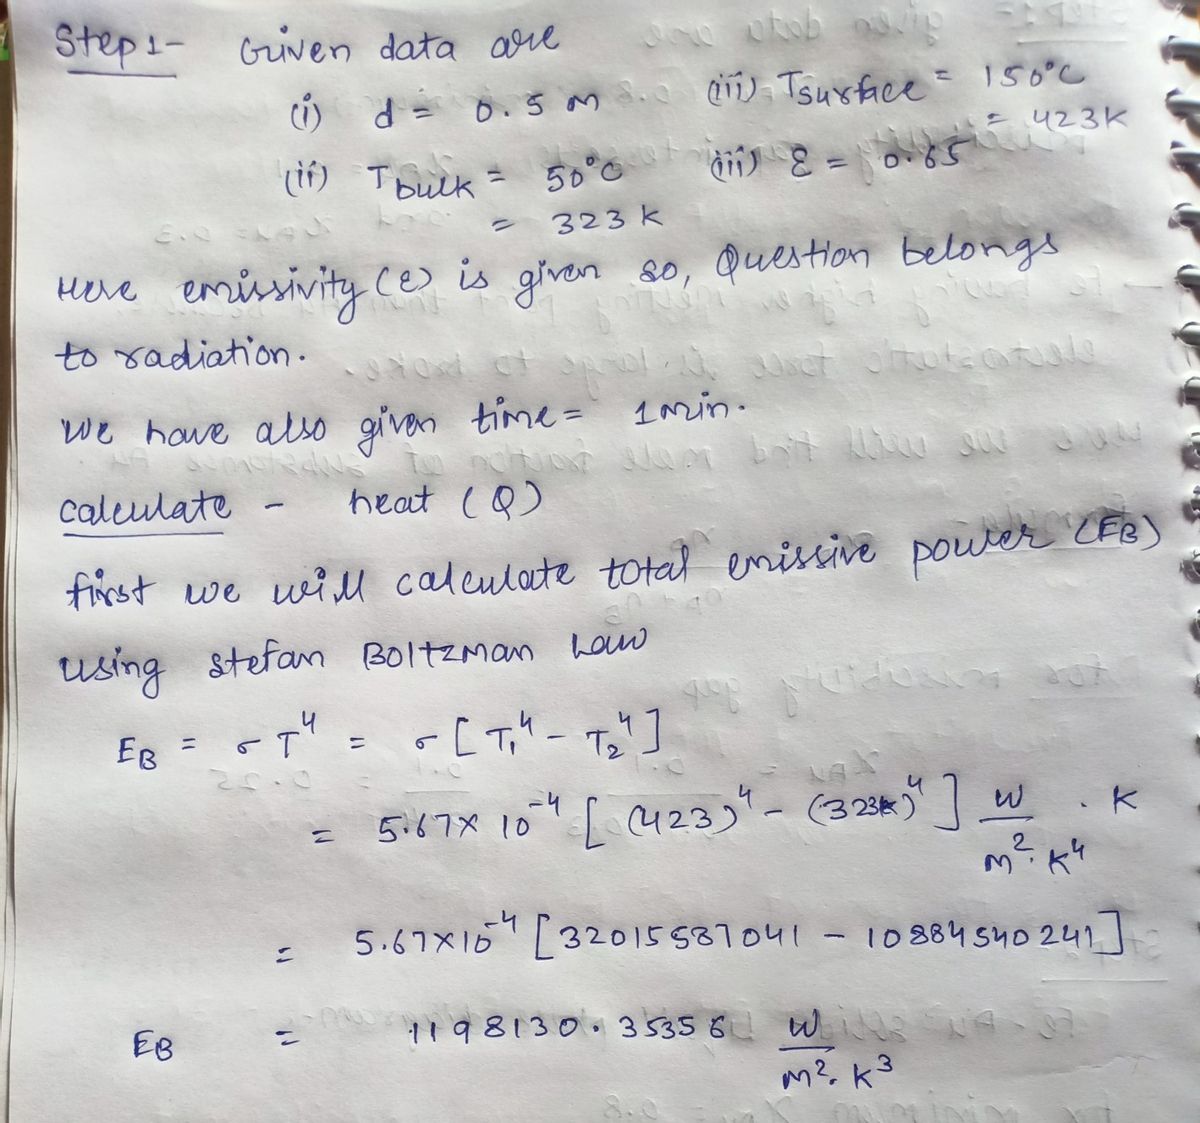 Step 1- Given data are
(i) d = 0.5 m (iii) Tsurface = 150°C
= 423K
(ii) Tbulk = 50°C (iii) ε = 0.65
= 323 K
Here emissivity (ε) is given so, Question belongs
to radiation.
We have also given time = 1 min.
calculate - heat (Q)
first we will calculate total emissive power (EB)
using stefan Boltzman Law
EB = σT⁴ = σ[T₁⁴ - T₂⁴]
= 5.67x 10⁻⁴ [(423)⁴ - (323)⁴] W/m².K⁴ . K
= 5.67x10⁻⁴ [32015587041 - 10884540241]
EB = 1198130.35356 W/m².K³